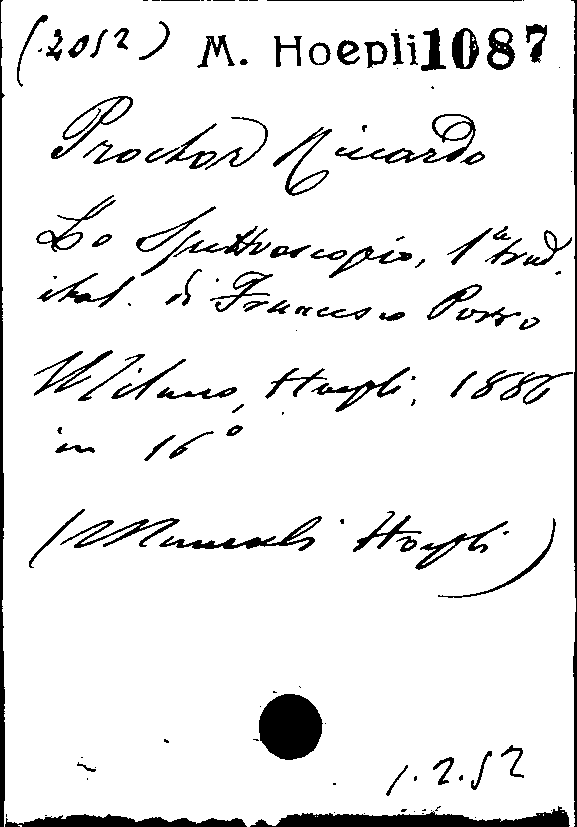 (2052) M. Hoepli 1087
Proctor Riccardo
Lo Spettroscopio, 1ª trad.
ital. di Francesco Porro
Milano, Hoepli, 1886
in 16°
(Manuali Hoepli)
1.2.52